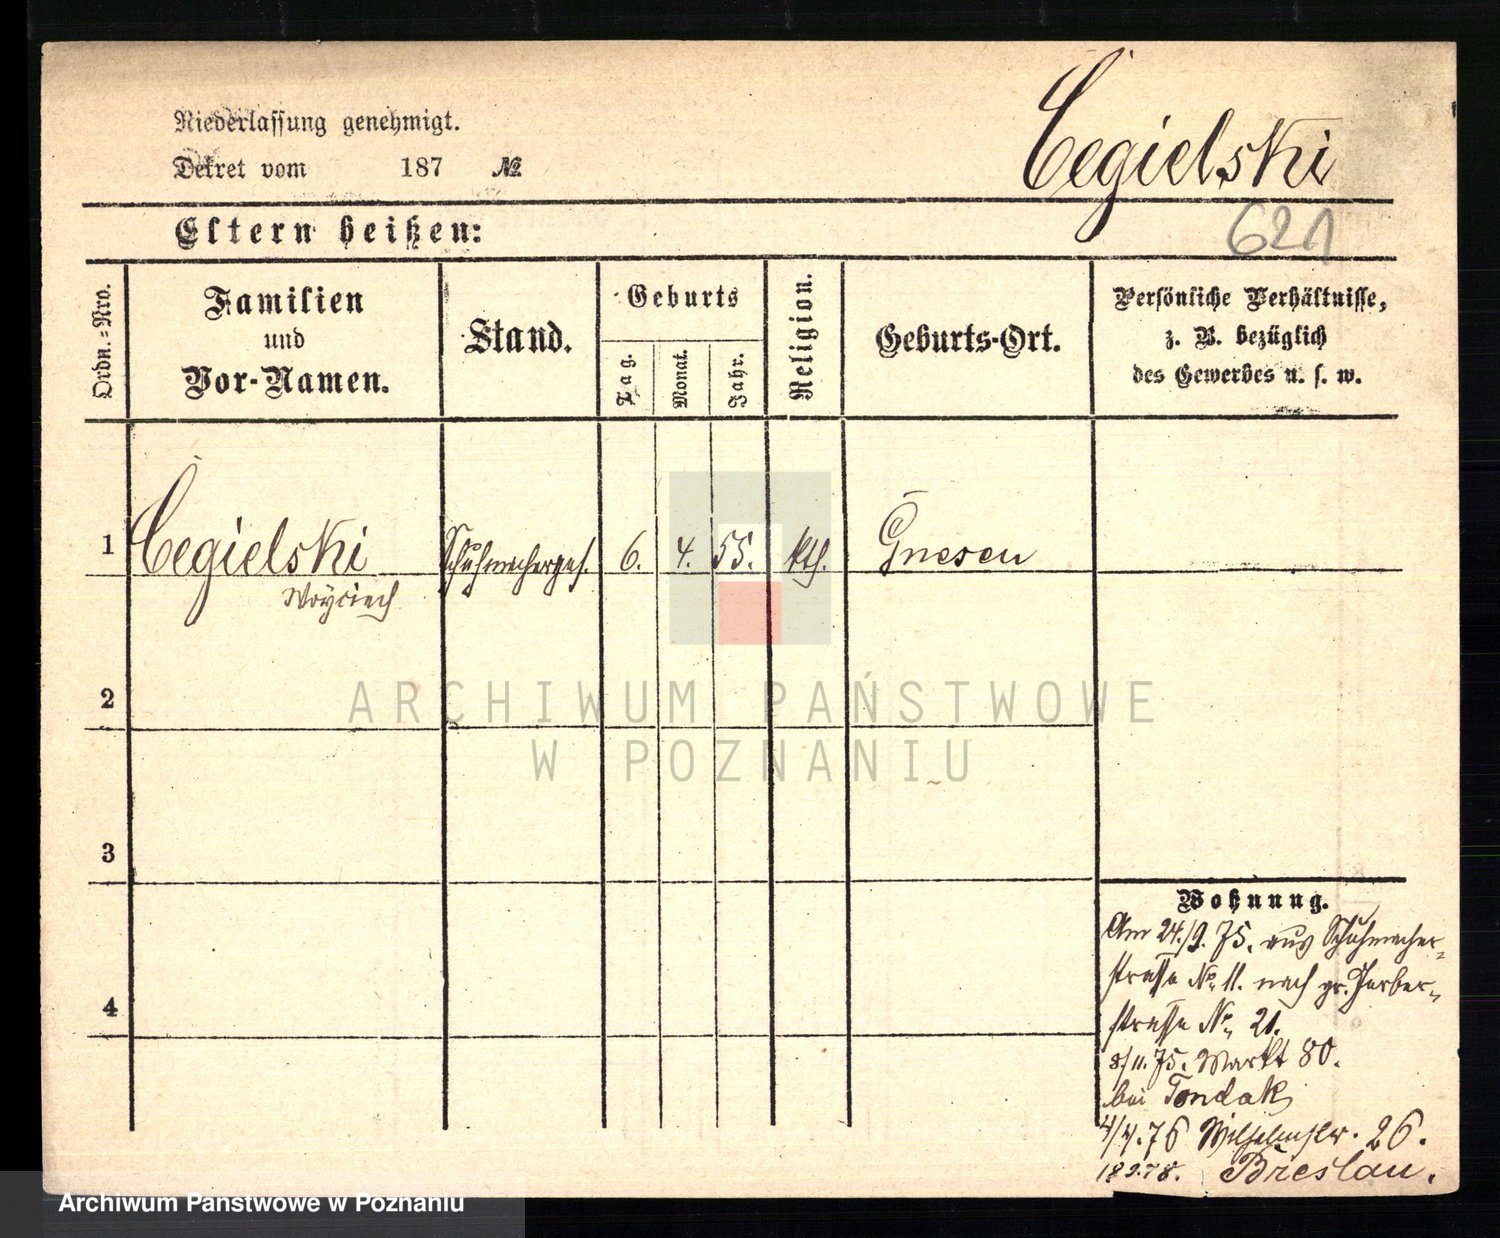 Niederlassung genehmigt.
Dekret vom 187 №
Cegielski
621
Eltern heißen:
Ordn.=Nro.
Familien
und
Vor-Namen.
Stand.
Geburts
Tag.
Monat.
Jahr.
Religion.
Geburts-Ort.
Persönliche Verhältnisse,
z. B. bezüglich
des Gewerbes u. s. w.
1 Cegielski Schuhmacherges. 6. 4. 55. kth. Gnesen
Woyciech
2
3
4
Wohnung.
Am 24./9. 75. aus Schuhmacher-
strasse No. 11. nach gr. Gerber-
strasse No. 21.
8/11. 75. Markt 80.
bei Tondak
4/4. 76 Wilhelmstr. 26.
18 9.78. Breslau.
ARCHIWUM PAŃSTWOWE
W POZNANIU
Archiwum Państwowe w Poznaniu